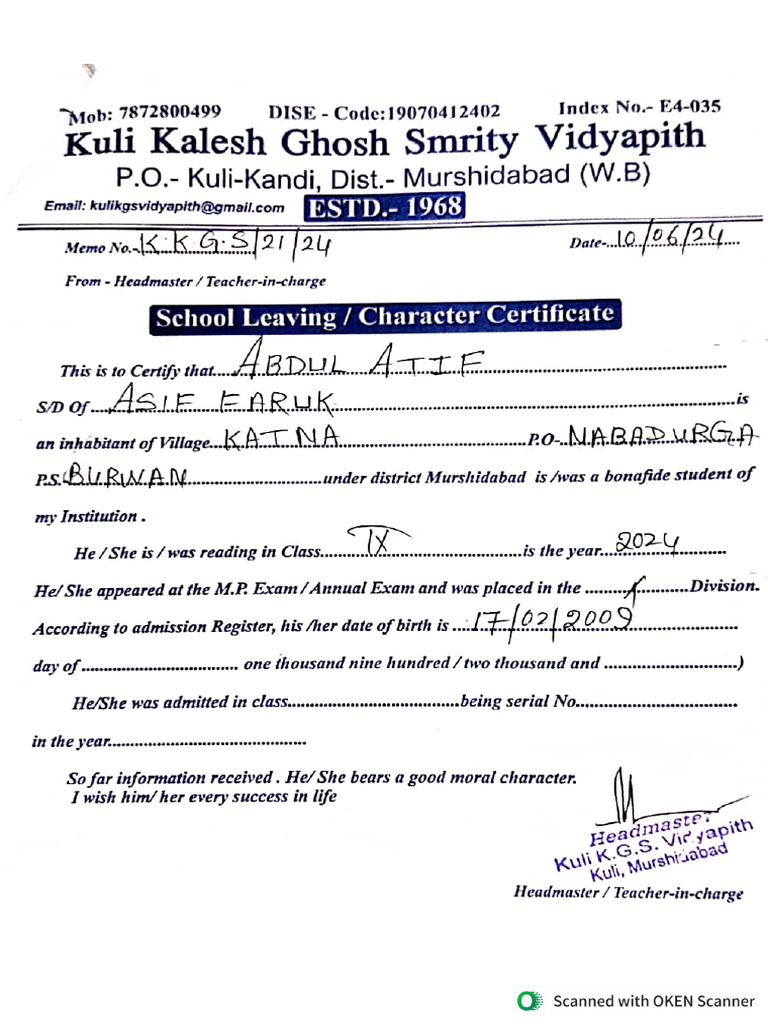 Mob: 7872800499 DISE - Code:19070412402 Index No.- E4-035
Kuli Kalesh Ghosh Smrity Vidyapith
P.O.- Kuli-Kandi, Dist.- Murshidabad (W.B)
Email: kulikgsvidyapith@gmail.com ESTD.- 1968
Memo No.- K.K.G.S/21/24 Date- 10/06/24
From - Headmaster / Teacher-in-charge
School Leaving / Character Certificate
This is to Certify that ABDUL ATIF
S/D Of ASIF FARUK is
an inhabitant of Village KATNA P.O- NABADURGA
P.S. BURWAN under district Murshidabad is /was a bonafide student of
my Institution .
He / She is / was reading in Class IX is the year 2024
He/ She appeared at the M.P. Exam / Annual Exam and was placed in the Division.
According to admission Register, his /her date of birth is 17/02/2009
day of one thousand nine hundred / two thousand and )
He/She was admitted in class being serial No.
in the year
So far information received . He/ She bears a good moral character.
I wish him/ her every success in life
Headmaster
Kuli K.G.S. Vidyapith
Kuli, Murshidabad
Headmaster / Teacher-in-charge
Scanned with OKEN Scanner